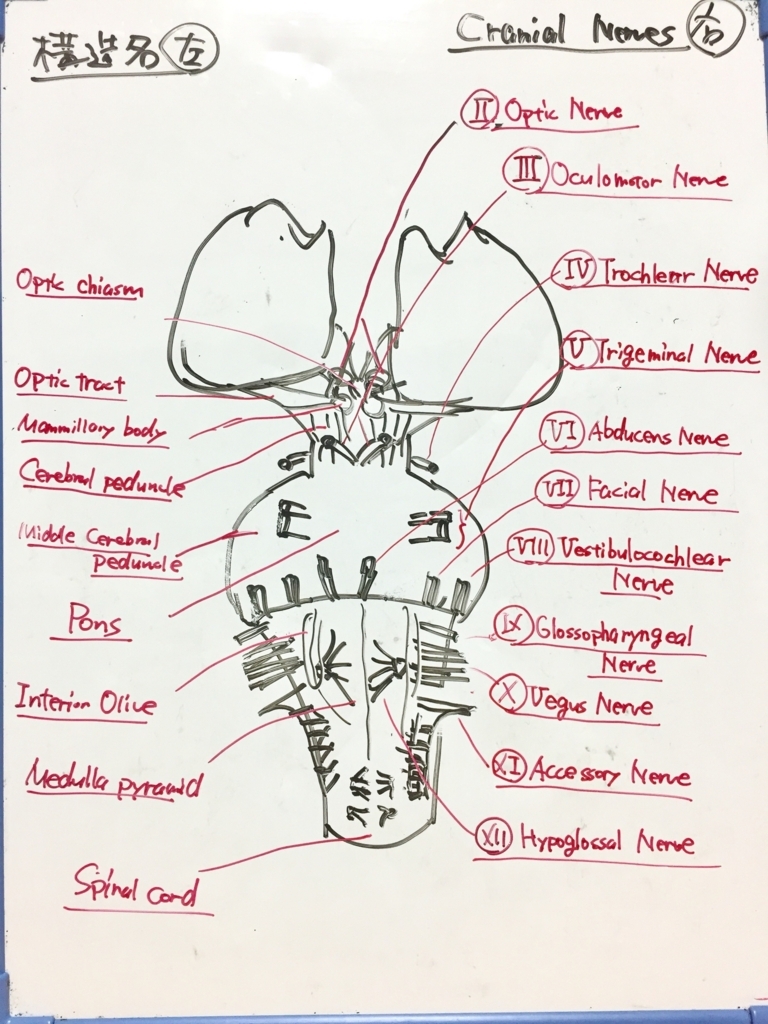 構造名 左
Cranial Nerves 右
II Optic Nerve
III Oculomotor Nerve
IV Trochlear Nerve
V Trigeminal Nerve
VI Abducens Nerve
VII Facial Nerve
VIII Vestibulocochlear
Nerve
IX Glossopharyngeal
Nerve
X Vegus Nerve
XI Accessory Nerve
XII Hypoglossal Nerve
Optic chiasm
Optic tract
Mammillory body
Cerebral peduncle
Middle Cerebral
peduncle
Pons
Interior Olive
Medulla pyramid
Spinal cord